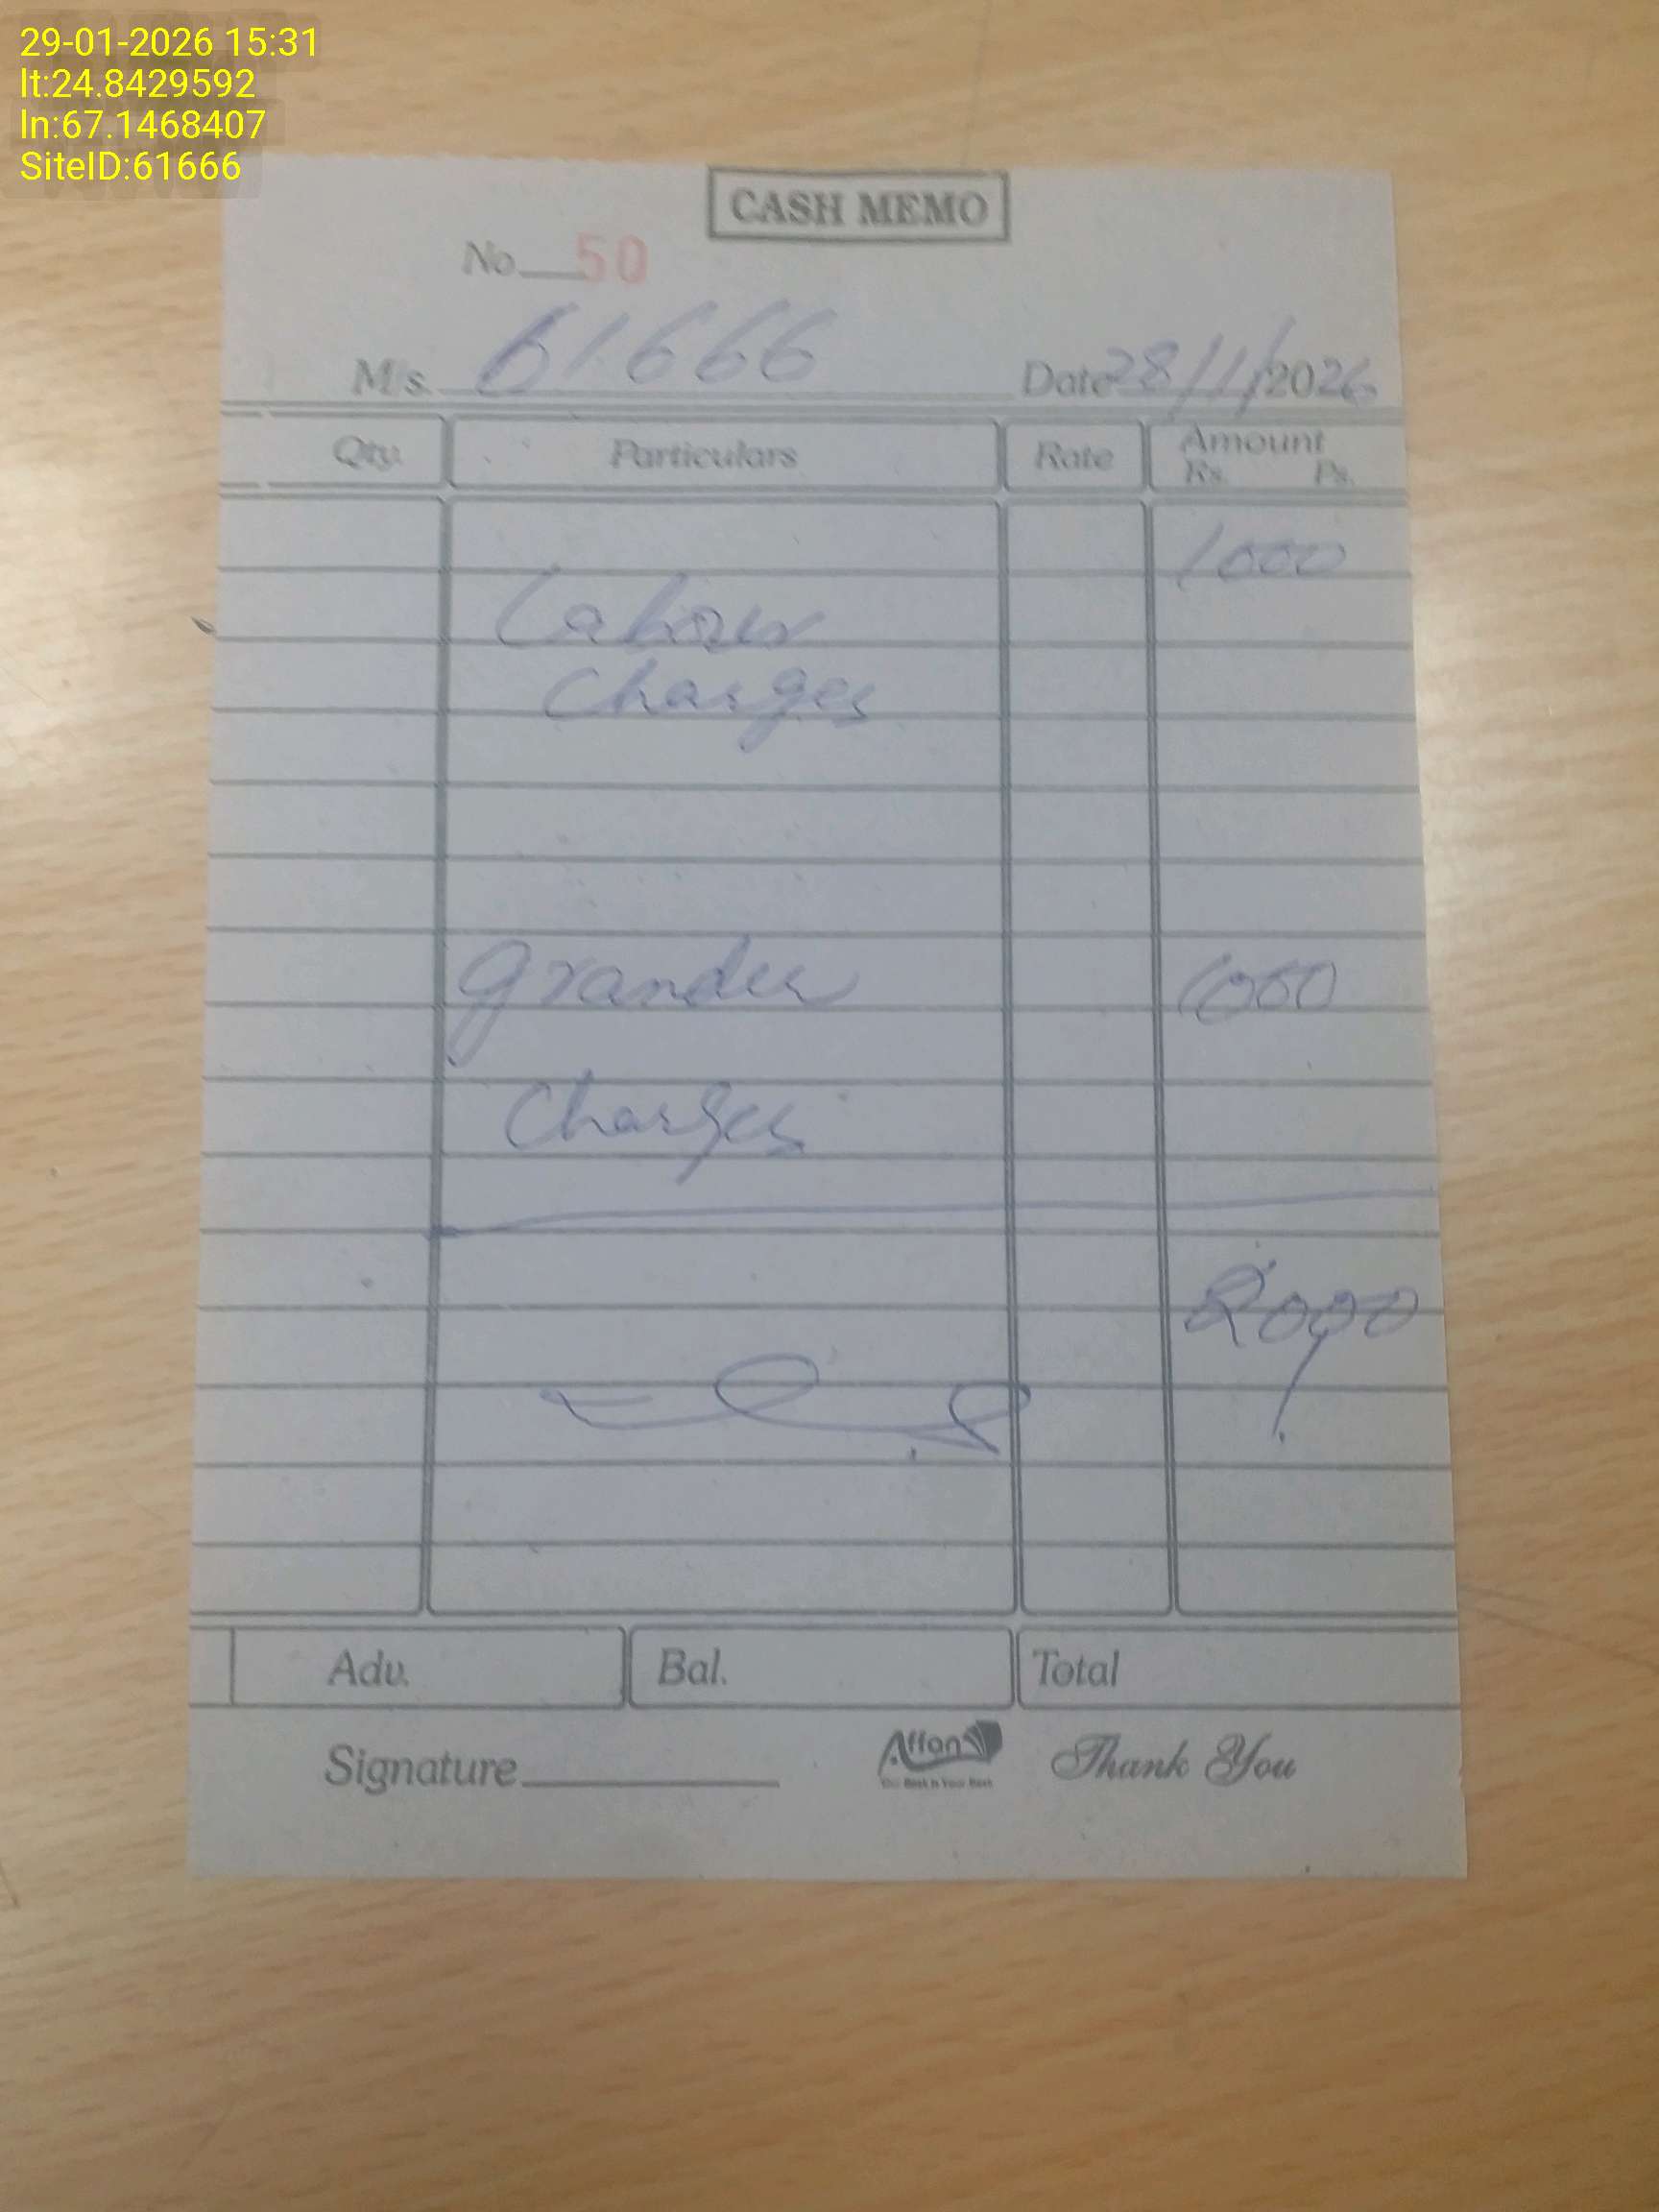 29-01-2026 15:31
lt:24.8429592
ln:67.1468407
SiteID:61666
CASH MEMO
No. 50
M/s. 61666 Date 28/1/2026
Qty. Particulars Rate Amount
Rs. Ps.
1000
Labour
Charges
Grander 1000
Charges
2000
Adv. Bal. Total
Signature Affan Thank You